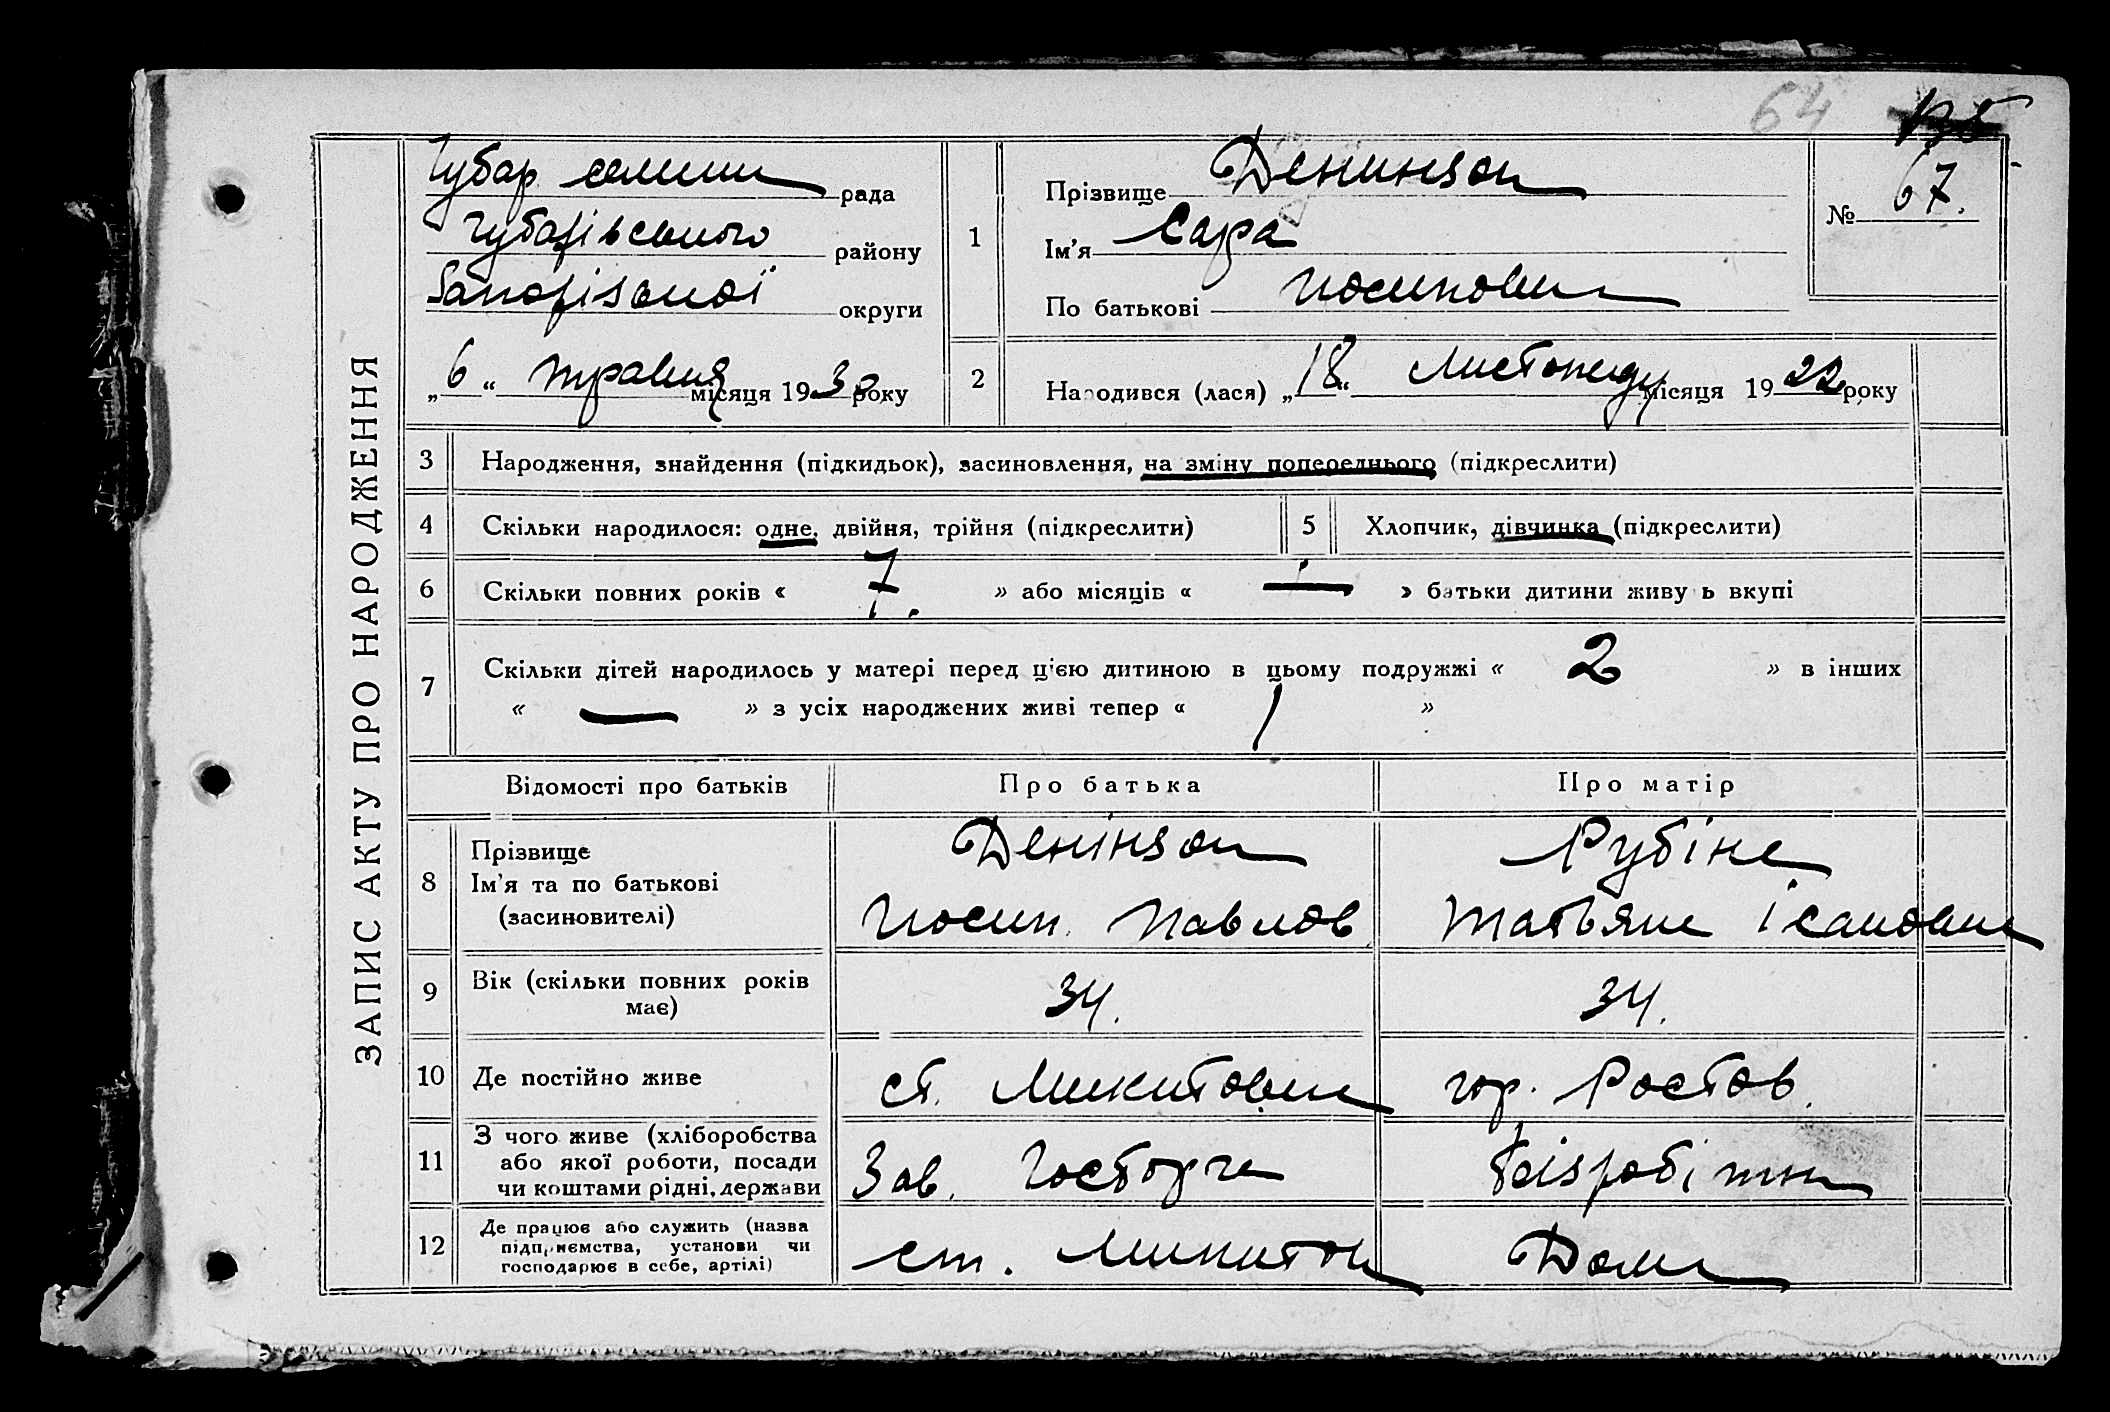 64
67.
ЗАПИС АКТУ ПРО НАРОДЖЕННЯ
Чубар селищн рада
Чубарівського району
Запорізької округи
„6“ травня місяця 1930 року
1
Прізвище Денинзон
Ім'я Сара
По батькові Иосиповн
№ 67.
2
Народився (лася) „18“ Листопаду місяця 1922 року
3 Народження, знайдення (підкидьок), засиновлення, на зміну попереднього (підкреслити)
4 Скільки народилося: одне, двійня, трійня (підкреслити)
5 Хлопчик, дівчинка (підкреслити)
6 Скільки повних років « 7. » або місяців « — » батьки дитини живуть вкупі
7 Скільки дітей народилось у матері перед ц'єю дитиною в цьому подружжі « 2 » в інших
« — » з усіх народжених живі тепер « 1 »
Відомості про батьків Про батька Про матір
8 Прізвище
Ім'я та по батькові
(засиновителі)
Денінзон
Иосип. Павлов
Рубіне
Татьяне Ісаковне
9 Вік (скільки повних років
має)
34.
34.
10 Де постійно живе
ст. Микитовк
гор. Ростов.
11 З чого живе (хліборобства
або якої роботи, посади
чи коштами рідні, держави
Зав. Госторга
12 Де працює або служить (назва
підприємства, установи чи
господарює в себе, артілі)
ст. Микитов
Дома